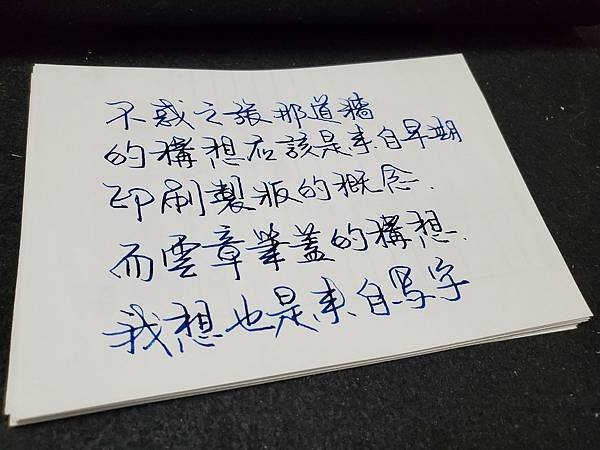 不惑之旅那道牆
的構想应該是來自早期
印刷製版的概念.
而雲章筆蓋的構想.
我想也是來自写字